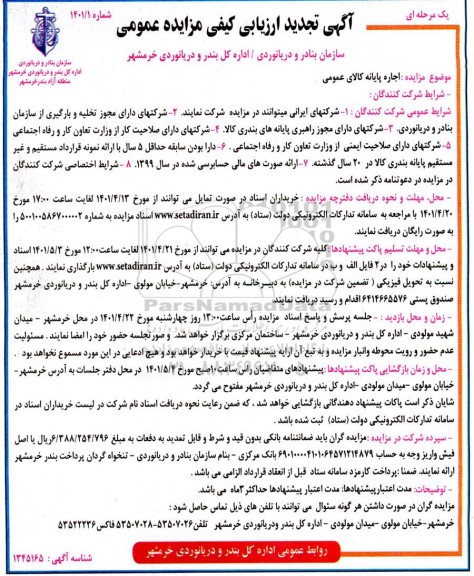 یک مرحله ای
آگهی تجدید ارزیابی کیفی مزایده عمومی
شماره ۱۴۰۱/۱
سازمان بنادر و دریانوردی / اداره کل بندر و دریانوردی خرمشهر
سازمان بنادر و دریانوردی
اداره کل بندر و دریانوردی خرمشهر
منطقه آزاد بندر خرمشهر
موضوع مزایده :اجاره پایانه کالای عمومی
- شرایط شرکت کنندگان :
شرایط عمومی شرکت کنندگان : ۱-شرکتهای ایرانی میتوانند در مزایده شرکت نمایند. ۲-شرکتهای دارای مجوز تخلیه و بارگیری از سازمان
بنادر و دریانوردی. ۳-شرکتهای دارای مجوز راهبری پایانه های بندری کالا. ۴-شرکتهای دارای صلاحیت کار از وزارت تعاون کار و رفاه اجتماعی
۵-شرکتهای دارای صلاحیت ایمنی از وزارت تعاون کار و رفاه اجتماعی . ۶-دارا بودن سابقه حداقل ۵ سال با ارائه نمونه قرارداد مستقیم و غیر
مستقیم پایانه بندری کالا در ۲۰ سال گذشته. ۷-ارائه صورت های مالی حسابرسی شده در سال ۱۳۹۹. ۸ - شرایط اختصاصی شرکت کنندگان
در مزایده در دعوتنامه ذکر شده است.
- محل، مهلت و نحوه دریافت دفترچه مزایده : خریداران اسناد در صورت تمایل می توانند از مورخ ۱۴۰۱/۴/۱۳ لغایت ساعت ۱۷:۰۰ مورخ
۱۴۰۱/۴/۲۰ با مراجعه به سامانه تدارکات الکترونیکی دولت (ستاد) به آدرس www.setadiran.ir اسناد مزایده به شماره ۵۰۰۱۰۰۵۸۶۷۰۰۰۰۰۲ را
به صورت رایگان دریافت نمایند.
- محل و مهلت تسلیم پاکت پیشنهادها :کلیه شرکت کنندگان در مزایده می توانند از مورخ ۱۴۰۱/۴/۲۱ لغایت ساعت۱۲:۰۰ مورخ ۱۴۰۱/۵/۳ اسناد
و پیشنهادات خود را در۲ فایل الف و ب در سامانه تدارکات الکترونیکی دولت (ستاد) به آدرس www.setadiran.ir بارگذاری نمایند . همچنین
نسبت به تحویل فیزیکی ( تضمین شرکت در مزایده) به دبیرخانه به آدرس: خرمشهر-خیابان مولوی -اداره کل بندر و دریانوردی خرمشهر
صندوق پستی ۶۴۱۴۶۶۵۵۷۶ اقدام و رسید دریافت نمایند.
- زمان و محل بازدید : - جلسه پرسش و پاسخ اسناد مزایده رأس ساعت۱۳:۰۰ روز چهارشنبه مورخ ۱۴۰۱/۴/۲۲ در محل خرمشهر - میدان
شهید مولودی - اداره کل بندر و دریانوردی خرمشهر - ساختمان مرکزی برگزار خواهد شد. و صورتجلسه حضور خود را امضا نمایند . مسئولیت
عدم حضور و رویت محوطه وانبار مزایده و به تبع آن ارایه پیشنهاد قیمت با خریدار خواهد بود و هیچ ادعایی در این مورد مسموع نخواهد بود .
- محل و زمان بازگشایی پاکت پیشنهادها :پیشنهادهای متقاضیان راس ساعت۱۰صبح مورخ ۱۴۰۱/۵/۴ در محل دفتر جلسات به آدرس خرمشهر-
خیابان مولوی -میدان مولودی -اداره کل بندر و دریانوردی خرمشهر مفتوح می گردد.
شایان ذکر است پاکات پیشنهاد دهندگانی بازگشایی خواهد شد ، که ضمن رعایت نحوه دریافت اسناد نام شرکت در لیست خریداران اسناد در
سامانه تدارکات الکترونیکی دولت (ستاد) ثبت شده باشد .
- سپرده شرکت در مزایده :مزایده گران باید ضمانتنامه بانکی بدون قید و شرط و قابل تمدید به دفعات به مبلغ ۶/۳۸۸/۲۵۴/۷۹۶ریال یا اصل
فیش واریز وجه به حساب ۴۰۰۱۰۶۴۵۷۱۲۱۴۸۷۹ بانک مرکزی - بنام سازمان بنادر و دریانوردی - تنخواه گردان پرداخت بندر خرمشهر
ارائه نمایند. ضمنا :پرداخت کارمزد سامانه ستاد قبل از انعقاد قرارداد الزامی می باشد.
- توضیحات: مدت اعتبارپیشنهادها: مدت اعتبار پیشنهادها حداکثر۳ماه می باشد.
مزایده گران در صورت داشتن هر گونه سئوال می توانند با تلفن های ذیل تماس حاصل شود :
خرمشهر-خیابان مولوی -میدان مولودی - اداره کل بندر ودریانوردی خرمشهر تلفن۵۳۵۰۷۰۲۶-۵۳۵۰۷۰۲۸ فاکس۵۳۵۲۲۲۳۶
روابط عمومی اداره کل بندر و دریانوردی خرمشهر
شناسه آگهی : ۱۳۴۵۱۶۵
ParsNamadData